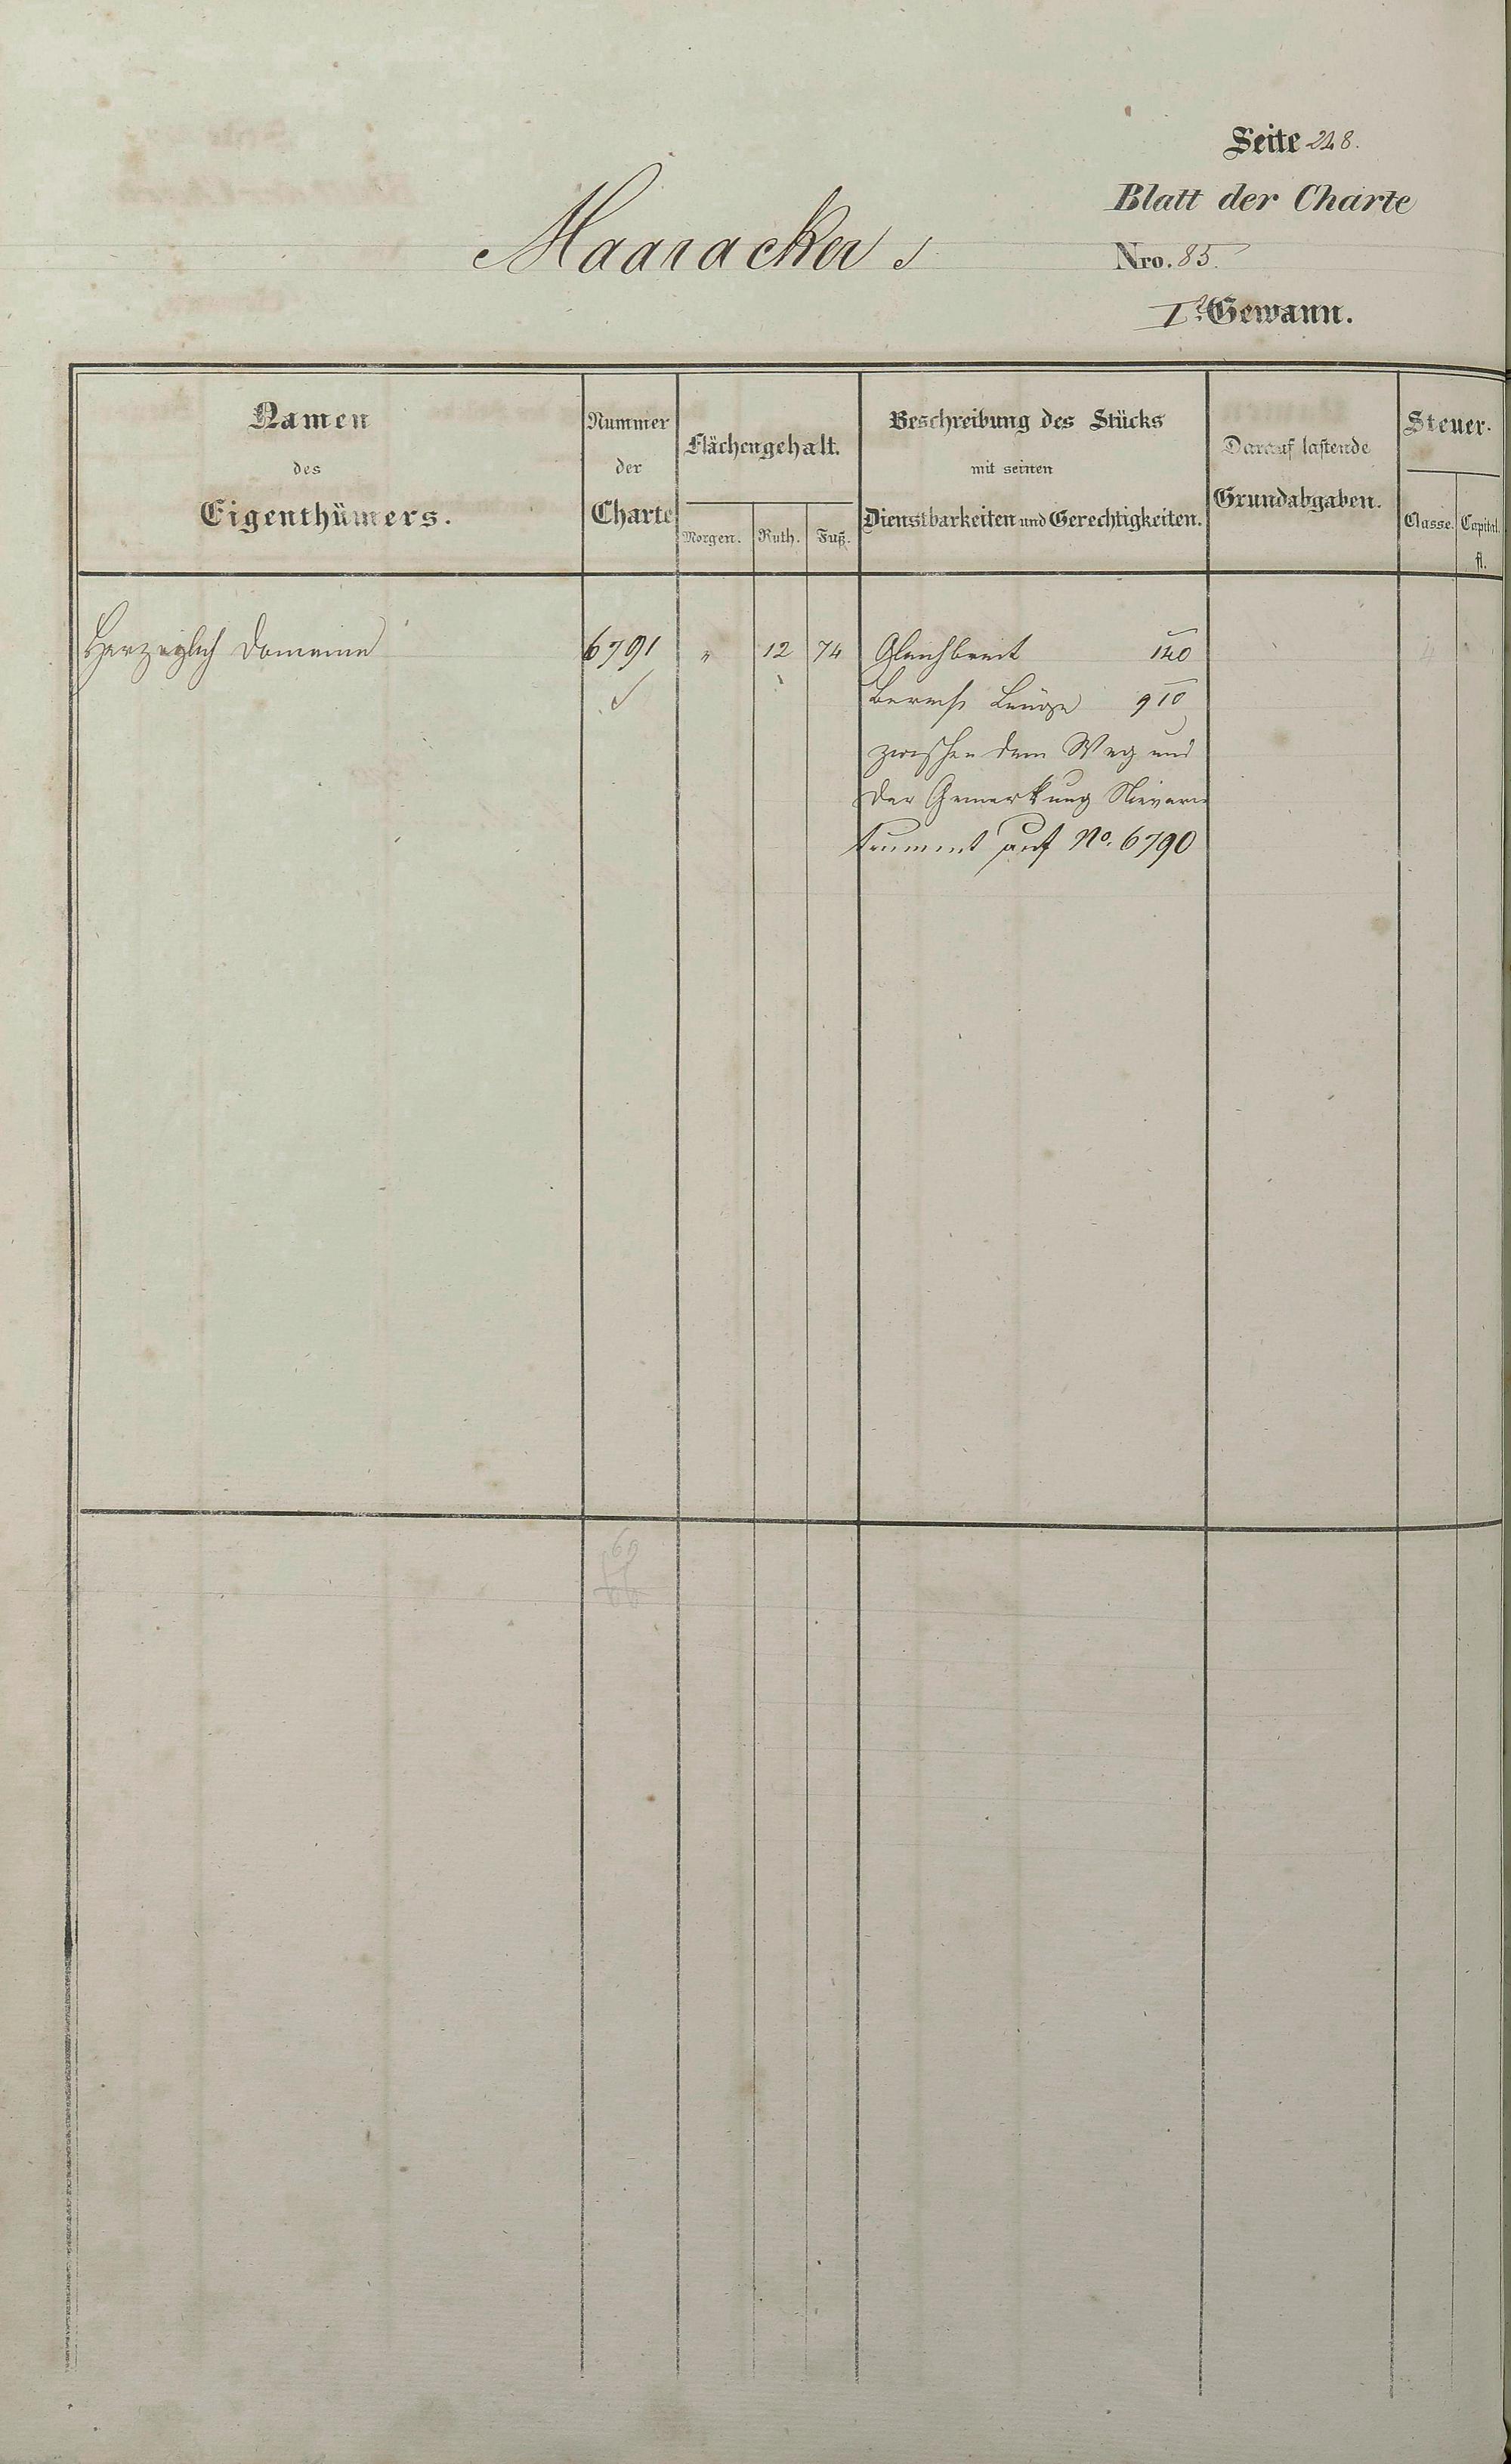 Seite 248.
Blatt der Charte
Maaracker
Nro. 85.
I.te Gewann.
Namen des Eigenthümers.
Nummer der Charte
Flächengehalt.
Morgen. Ruth. Fuß.
Beschreibung des Stücks mit seinen Dienstbarkeiten und Gerechtigkeiten.
Darauf lastende Grundabgaben.
Steuer-
Classe. Capital. fl.
Herzoglich Domaine 6791 " 12 74 Gleichbreit 140
Berechn Länge 910
zwischen dem Weg und
der Gemarkung Nievern
stummet auf No. 6790
69